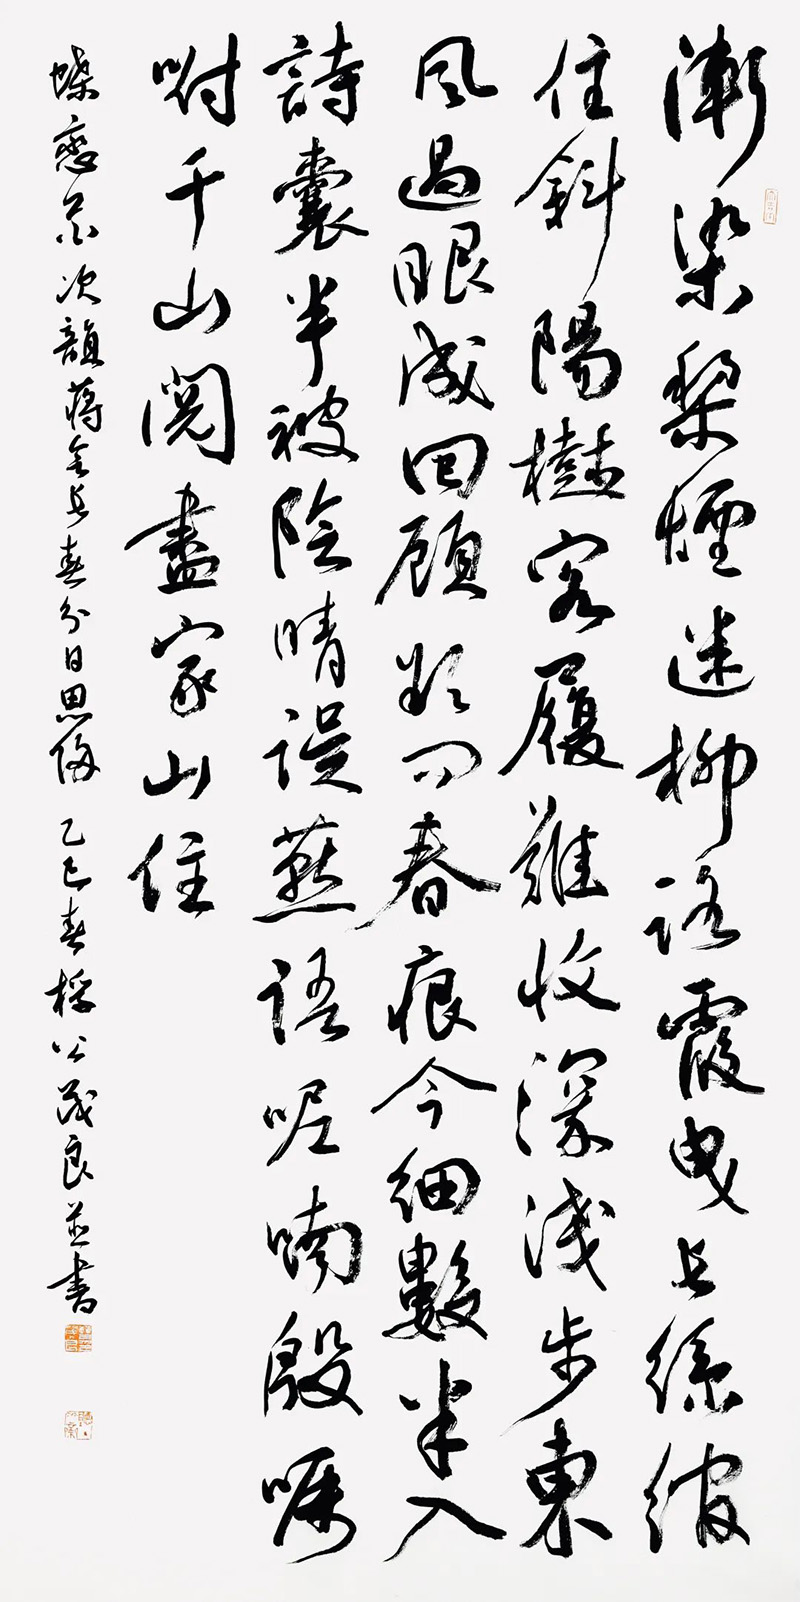 漸染梨煙迷柳路霞曳長絲綰
住斜陽樹客履難收深淺步東
風過眼成回顧欲問春痕今細數半入
詩囊半被陰晴誤燕語呢喃殷囑
咐千山閱盡家山住
蝶戀花次韻蔣長春分日思 乙巳春桴公茂良並書